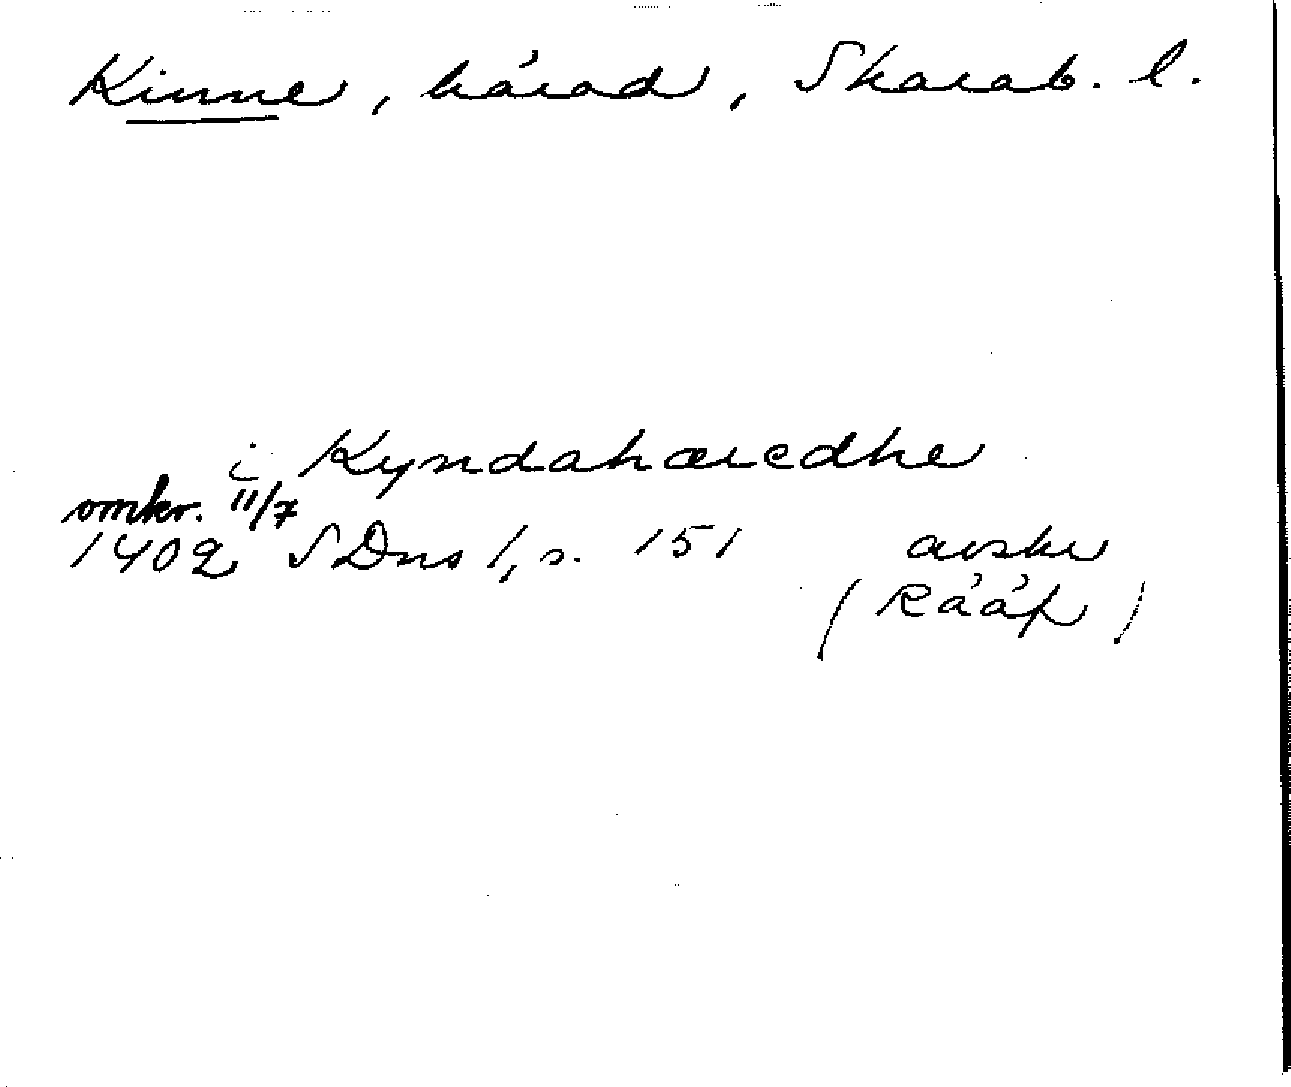 Kinne, härad, Skarab. l.
i Kyndahæredhe
omkr. 11/7
1402 SDns 1, s. 151 avskr
(RAÄp)